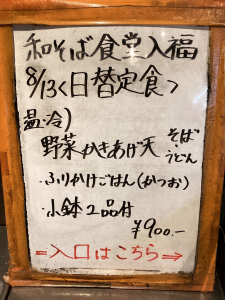 和そば食堂入福
8/13<日替定食>
温・冷)
野菜かきあげ天 そば・うどん
・ふりかけごはん(かつお)
・小鉢2品付
¥900.-
⇒入口はこちら⇒